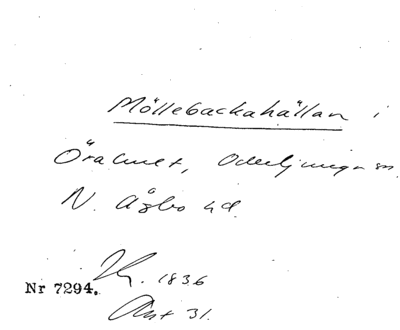 Möllebackahällan i
Örahult, Oderljunga sn.
N. Åsbo hd.
1836
Nr 7294.
Avst 31.